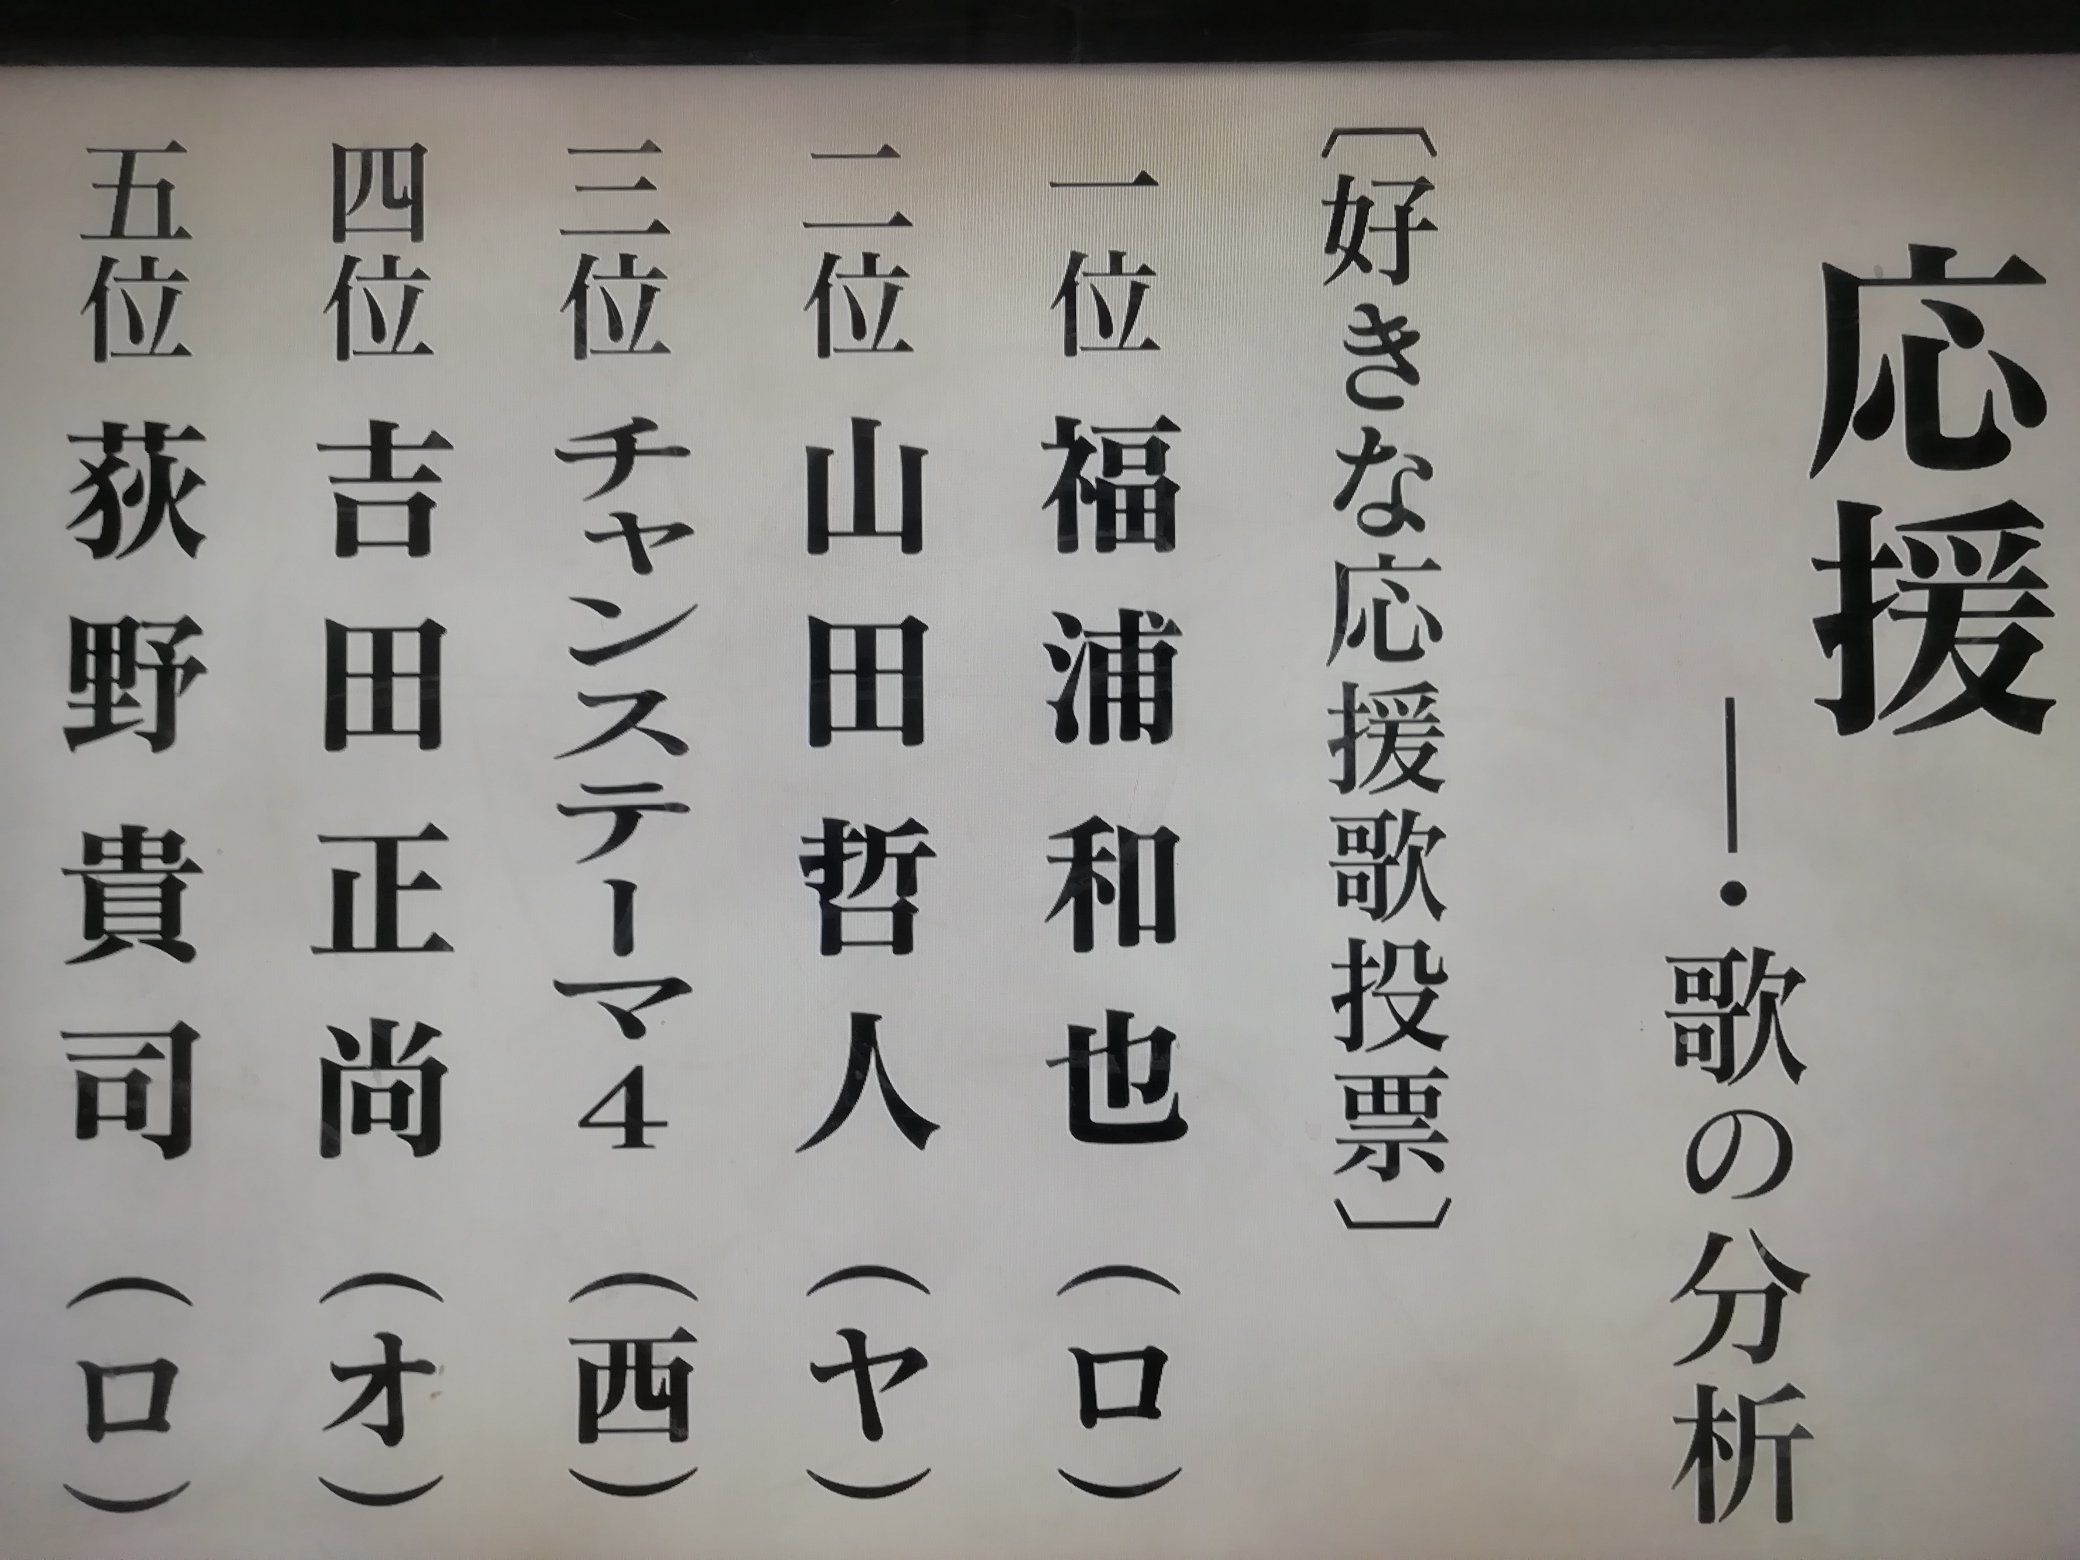 応援
―・歌の分析
〔好きな応援歌投票〕
一位 福浦和也（ロ）
二位 山田哲人（ヤ）
三位 チャンステーマ4（西）
四位 吉田正尚（オ）
五位 荻野貴司（ロ）